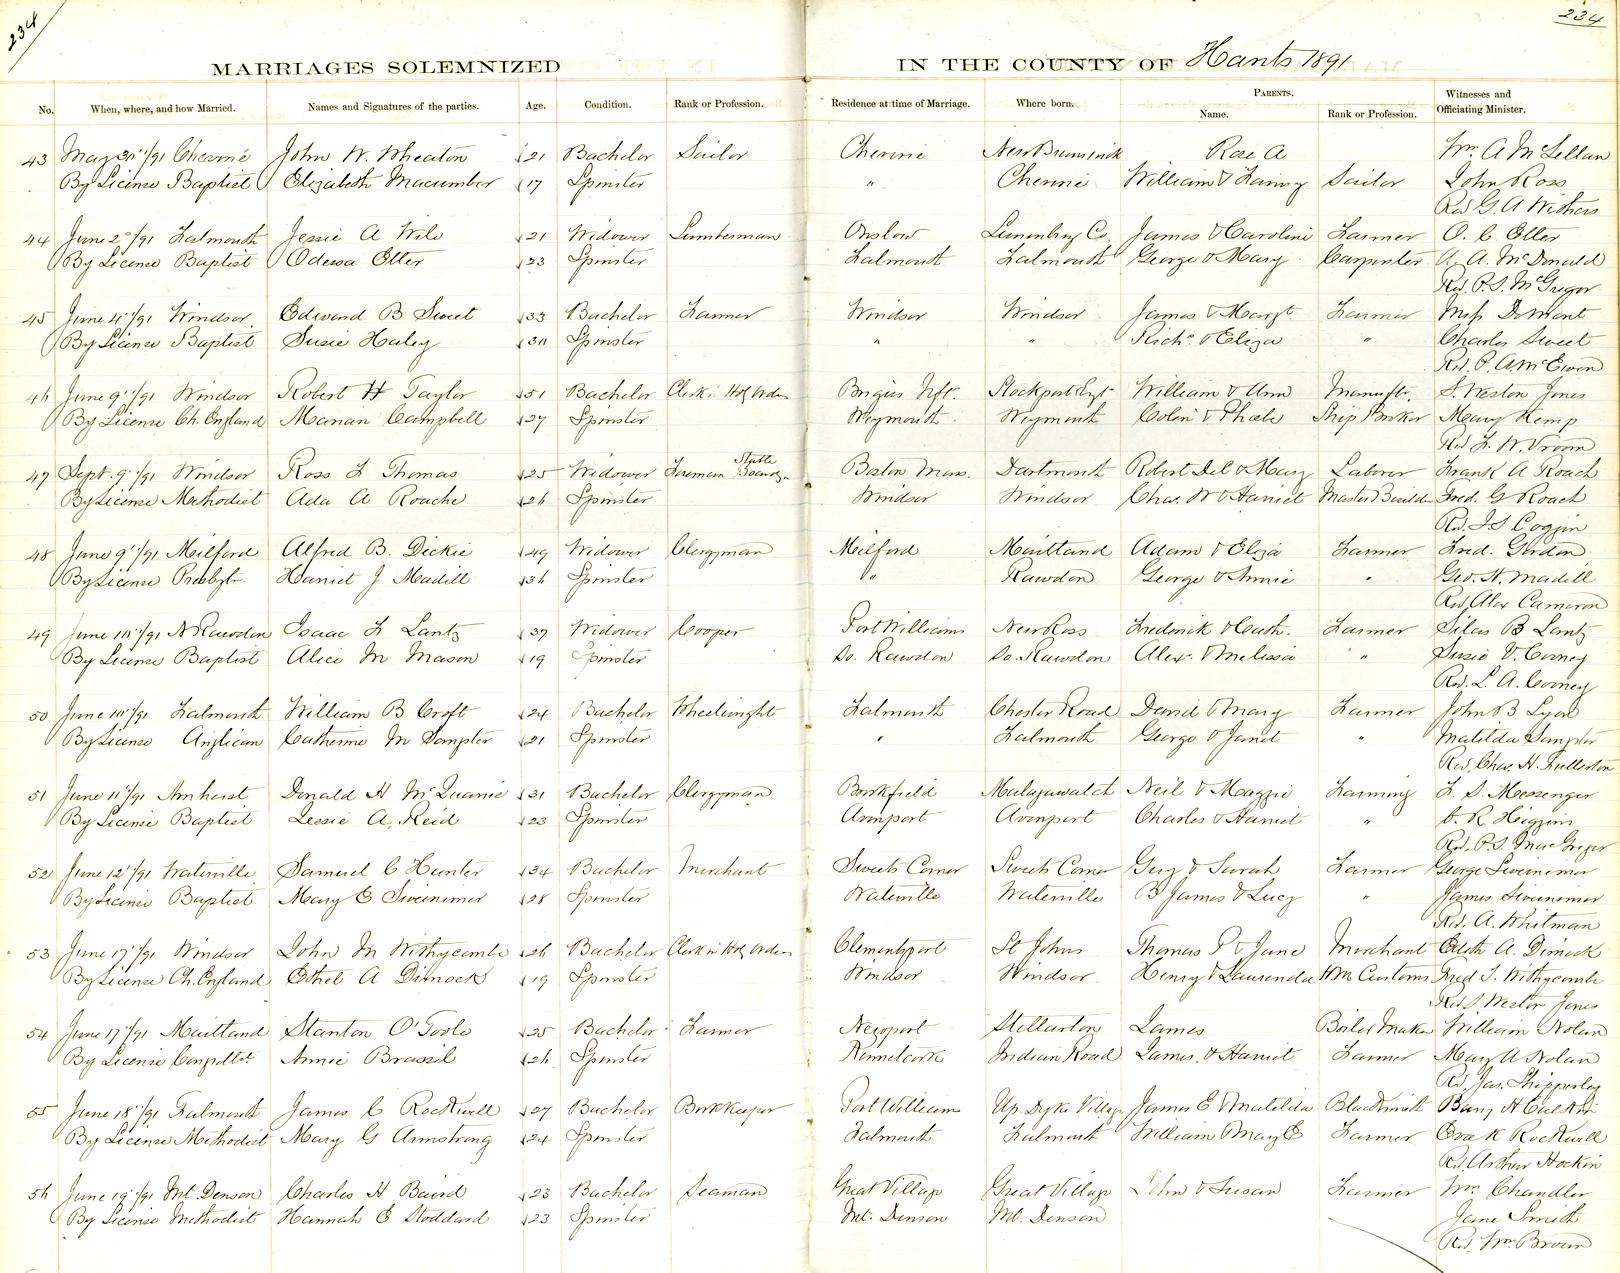 234
234
MARRIAGES SOLEMNIZED IN THE COUNTY OF Hants 1891
No. When, where, and how Married. Names and Signatures of the parties. Age. Condition. Rank or Profession. Residence at time of Marriage. Where born. PARENTS. Name. Rank or Profession. Witnesses and Officiating Minister.
43 May 30"/91 Cheverie John W. Wheaton 21 Bachelor Sailor Cheverie New Brunswick Rose A Wm. A McLellan
By License Baptist Elizabeth Macumber 17 Spinster " Cheverie William & Fanny Sailor John Ross
Rev G. A Withers
44 June 2"/91 Falmouth Jessie A Wile 21 Widower Lumberman Onslow Lunenburg Co. James & Caroline Farmer O. C Etter
By License Baptist Odessa Etter 23 Spinster Falmouth Falmouth George & Mary Carpenter A. A. McDonald
Rev. P. S. McGregor
45 June 4"/91 Windsor Edward B Sweet 33 Bachelor Farmer Windsor Windsor James & Margt. Farmer Miss DeMont
By License Baptist Susie Haley 30 Spinster " " Richd. & Eliza " Charles Sweet
Rev. P. A McEwen
46 June 9"/91 Windsor Robert H Taylor 51 Bachelor Clerk in Holy Orders Brigus Nft. Stockport Eng. William & Ann Manuftr. S. Weston Jones
By License Ch. England Marian Campbell 27 Spinster Weymouth Weymouth Colin & Phoebe Ship Broker Mary Kemp
Rev F. W. Vroom
47 Sept. 9"/91 Windsor Ross F Thomas 25 Widower Foreman Boston Mass. Dartmouth Robert & Mary Laborer Frank A Roach
By License Methodist Ada A Roache 26 Spinster Windsor Windsor Chas. W & Harriet Master Builder Fred. G Roach
Rev. J. S Coffin
48 June 9"/91 Milford Alfred B. Dickie 49 Widower Clergyman Milford Maitland Adam & Eliza Farmer Fred. Gordon
By License Presbytn. Harriet J Madill 36 Spinster " Rawdon George & Annie " Geo. H. Madill
Rev. Alex Cameron
49 June 10"/91 N Rawdon Isaac F Lantz 37 Widower Cooper Port Williams New Ross Frederick & Cath. Farmer Silas B Lantz
By License Baptist Alice M Mason 19 Spinster So. Rawdon So. Rawdon Alex. & Melissa " Susie V. Cooney
Rev. L. A. Cooney
50 June 10"/91 Falmouth William B Croft 24 Bachelor Wheelwright Falmouth Chester Road David & Mary Farmer John B Lyon
By License Anglican Catherine M Sampter 21 Spinster " Falmouth George & Janet " Matilda Sampter
Rev. Chas. H. Fullerton
51 June 11"/91 Amherst Donald H McQuarrie 31 Bachelor Clergyman Brookfield Malagawatch Neil & Maggie Farming F. S. Messenger
By License Baptist Lessie A. Reid 23 Spinster Avonport Avonport Charles & Harriet " C. R Higgins
Rev. P. S. MacGregor
52 June 12"/91 Waterville Samuel C Hunter 34 Bachelor Merchant Sweets Corner Sweets Corner Guy & Sarah Farmer George Swinimer
By License Baptist Mary E Sweinimer 28 Spinster Waterville Waterville B James & Lucy " James Swinimer
Rev. A. Whitman
53 June 17"/91 Windsor John M Withycombe 26 Bachelor Clerk in Holy Orders Clementsport St Johns Thomas P & Jane Merchant Edith A. Dimock
By License Ch. England Ethel A Dimock 19 Spinster Windsor Windsor Henry & Laurenda HM Customs Fred J. Withycombe
Rev. S. Weston Jones
54 June 17"/91 Maitland Stanton O'Toole 25 Bachelor Farmer Newport Stellarton James Boiler Maker William Nolan
By License Annie Brassil 26 Spinster Kennetcook Indian Road James & Harriet Farmer Mary A Nolan
Rev. Jas. Shipperley
55 June 18"/91 Falmouth James C Rockwell 27 Bachelor Bookkeeper Port William Up. Dyke Village James E & Matilda Blacksmith
By License Methodist Mary G Armstrong 24 Spinster Falmouth Falmouth William & Mary E Farmer Eva K Rockwell
Rev. Arthur Hockin
56 June 19"/91 Mt. Denson Charles H Baird 23 Bachelor Seaman Great Village Great Village John & Susan Farmer Wm. Chandler
By License Methodist Hannah E Stoddard 23 Spinster Mt. Denson Mt. Denson Jane Smith
Rev. Wm. Brown